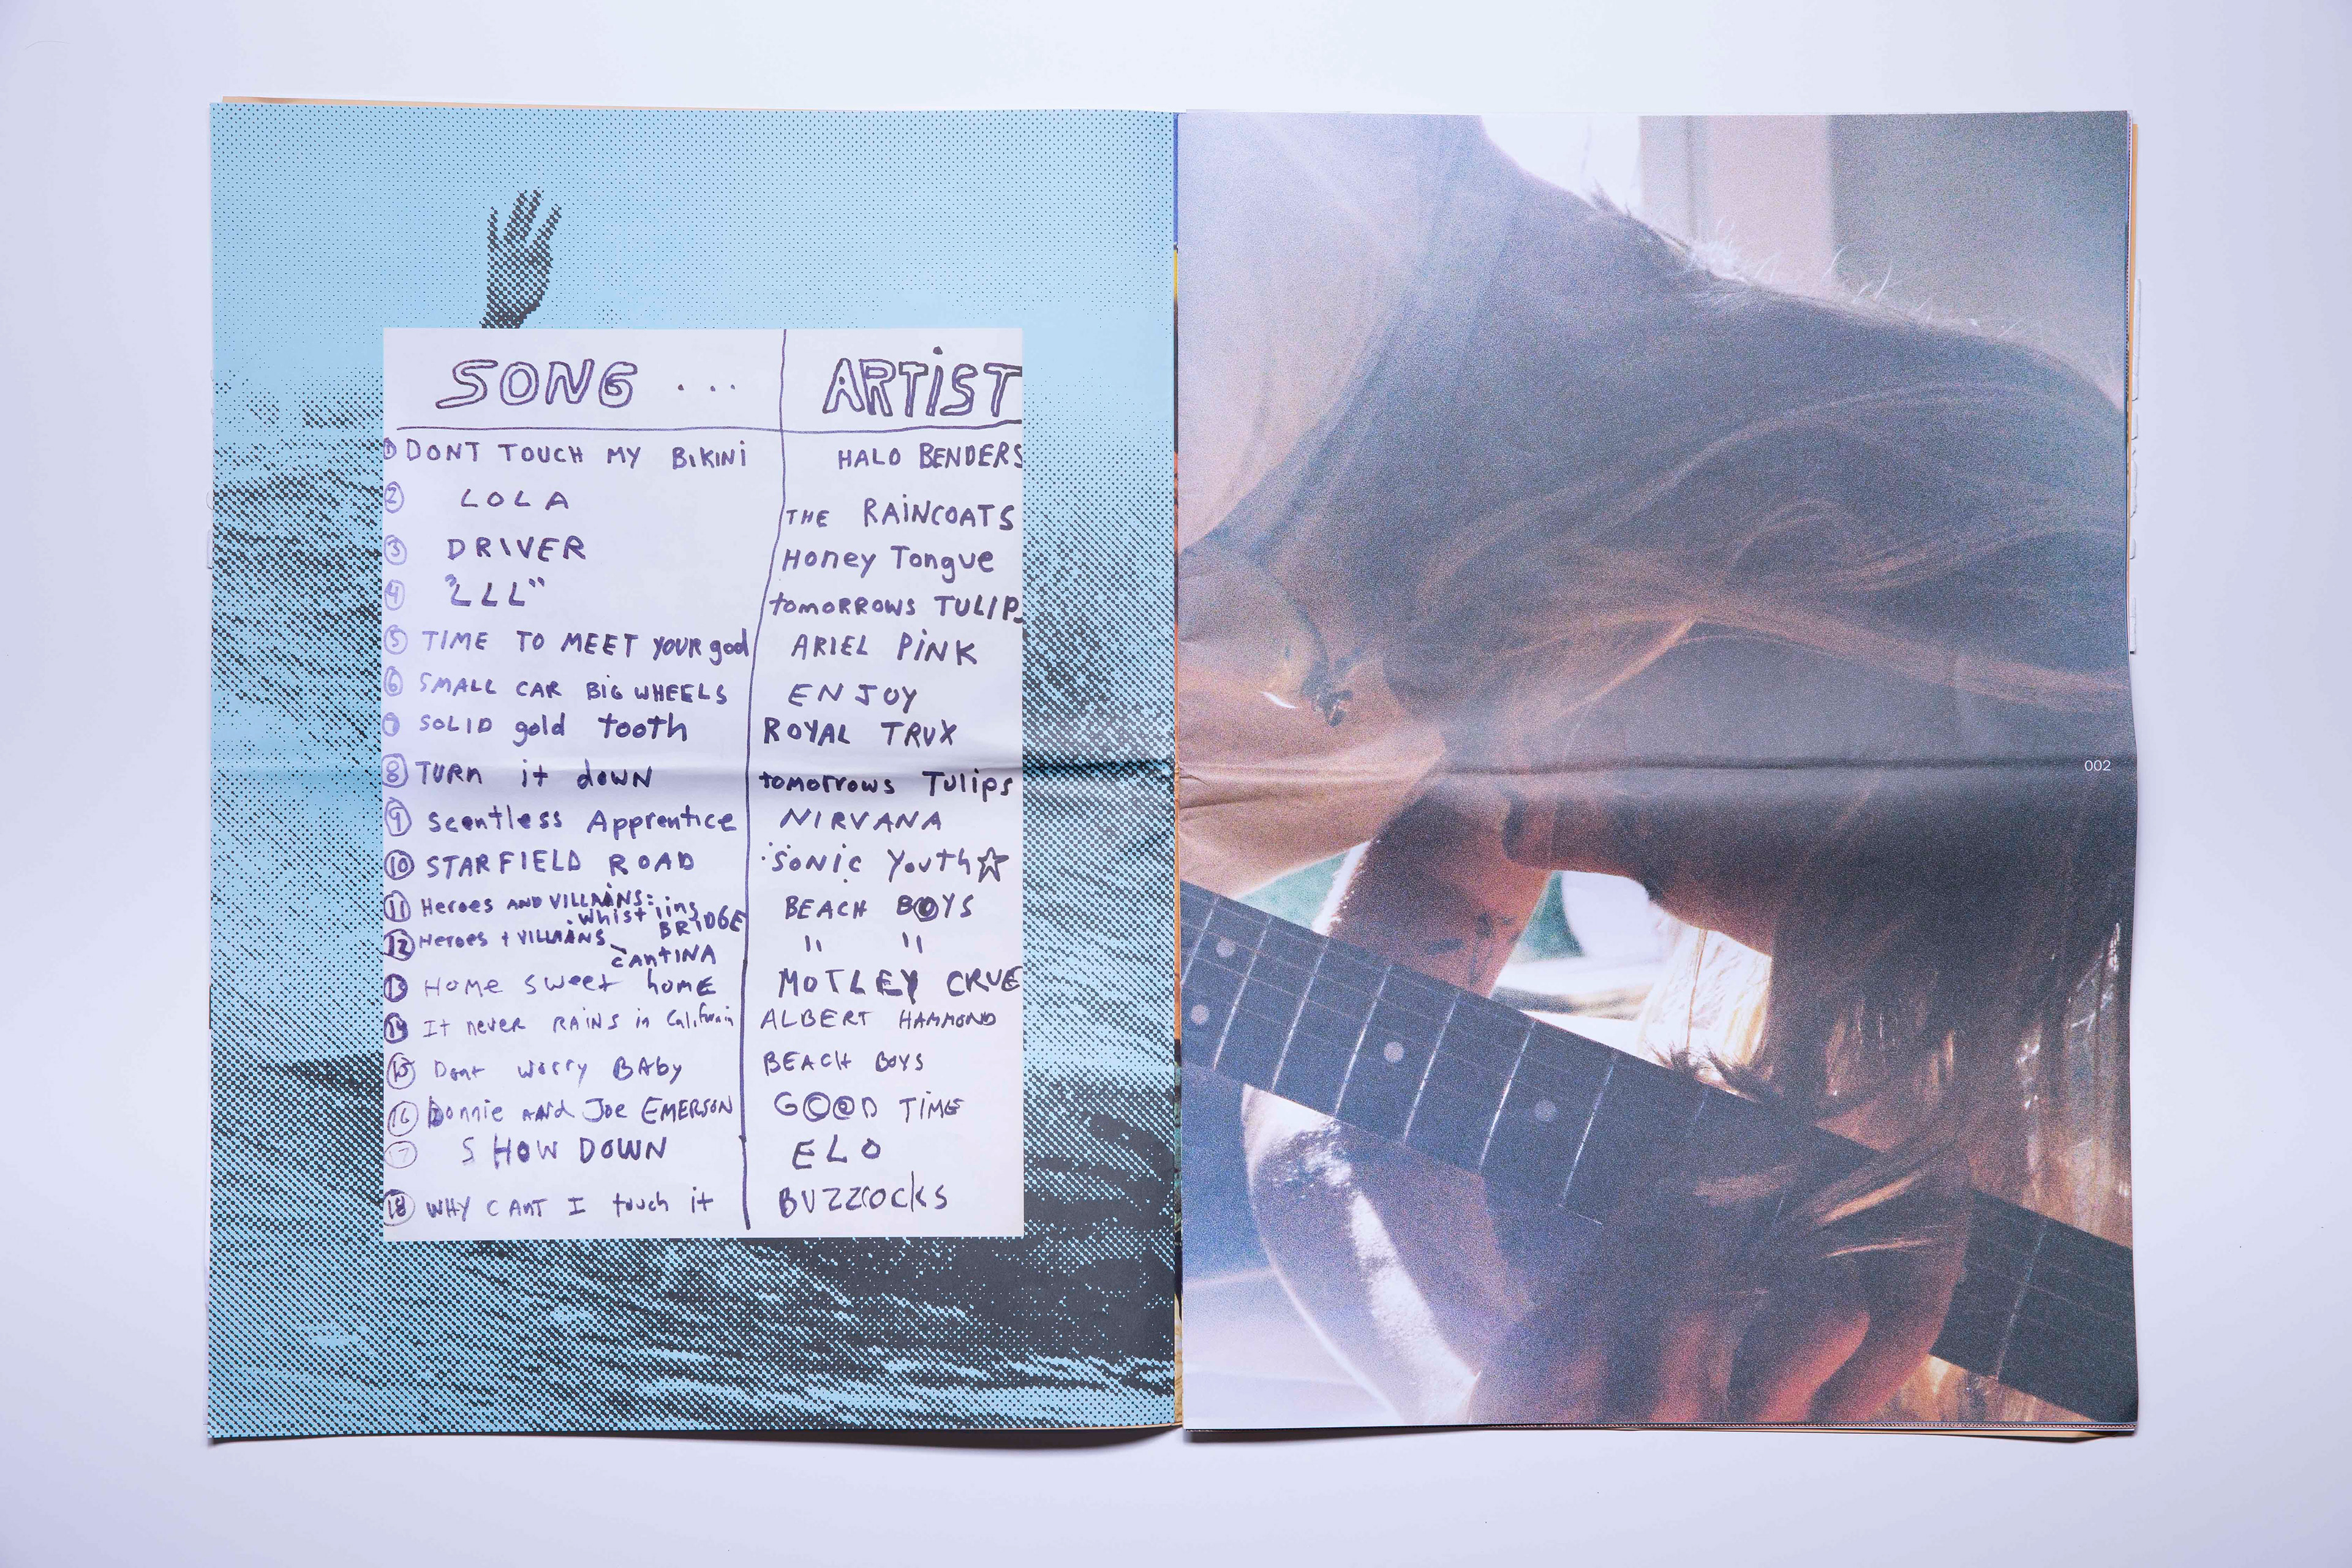 SONG ... ARTiST
① DONT TOUCH MY BiKiNi HALO BENDERS
② LOLA THE RAiNCOATS
③ DRIVER Honey Tongue
④ "LLL" tomoRROWS TULIPS
⑤ TIME TO MEET YOUR god ARIEL PiNK
⑥ SMALL CAR BiG WHEELS ENJOY
⑦ SOLID gold tooth ROYAL TRUX
⑧ TURn it down tomorrows Tulips
⑨ Scentless Apprentice NIRVANA
⑩ STARFIELD ROAD SONiC Youth☆
⑪ Heroes AND VILLAiNS: whistling BRiDGE BEACH BOYS
⑫ Heroes + VILLAiNS cantiNA " "
⑬ Home sweet home MOTLEY CRUE
⑭ It never RAiNS in California ALBERT HAMMOND
⑮ Dont worry BAby BEACH BOYS
⑯ Donnie and Joe EMERSON GOOD TiME
⑰ SHOW DOWN ELO
⑱ WHY CANT I touch it BUZZCOCKS
002